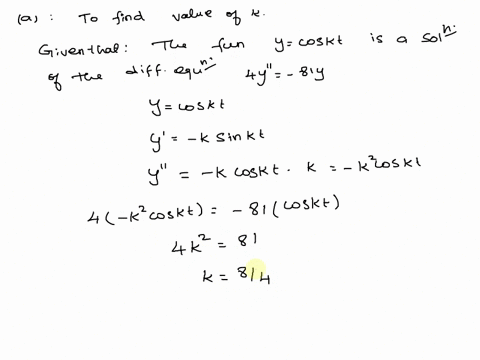 (a): To find value of k.
Given that: The fun y=coskt is a solⁿ.
of the diff. equⁿ. 4y"=-81y
y=coskt
y'=-k sinkt
y"=-k coskt. k=-k²coskt
4(-k²coskt)=-81(coskt)
4k²=81
k=814